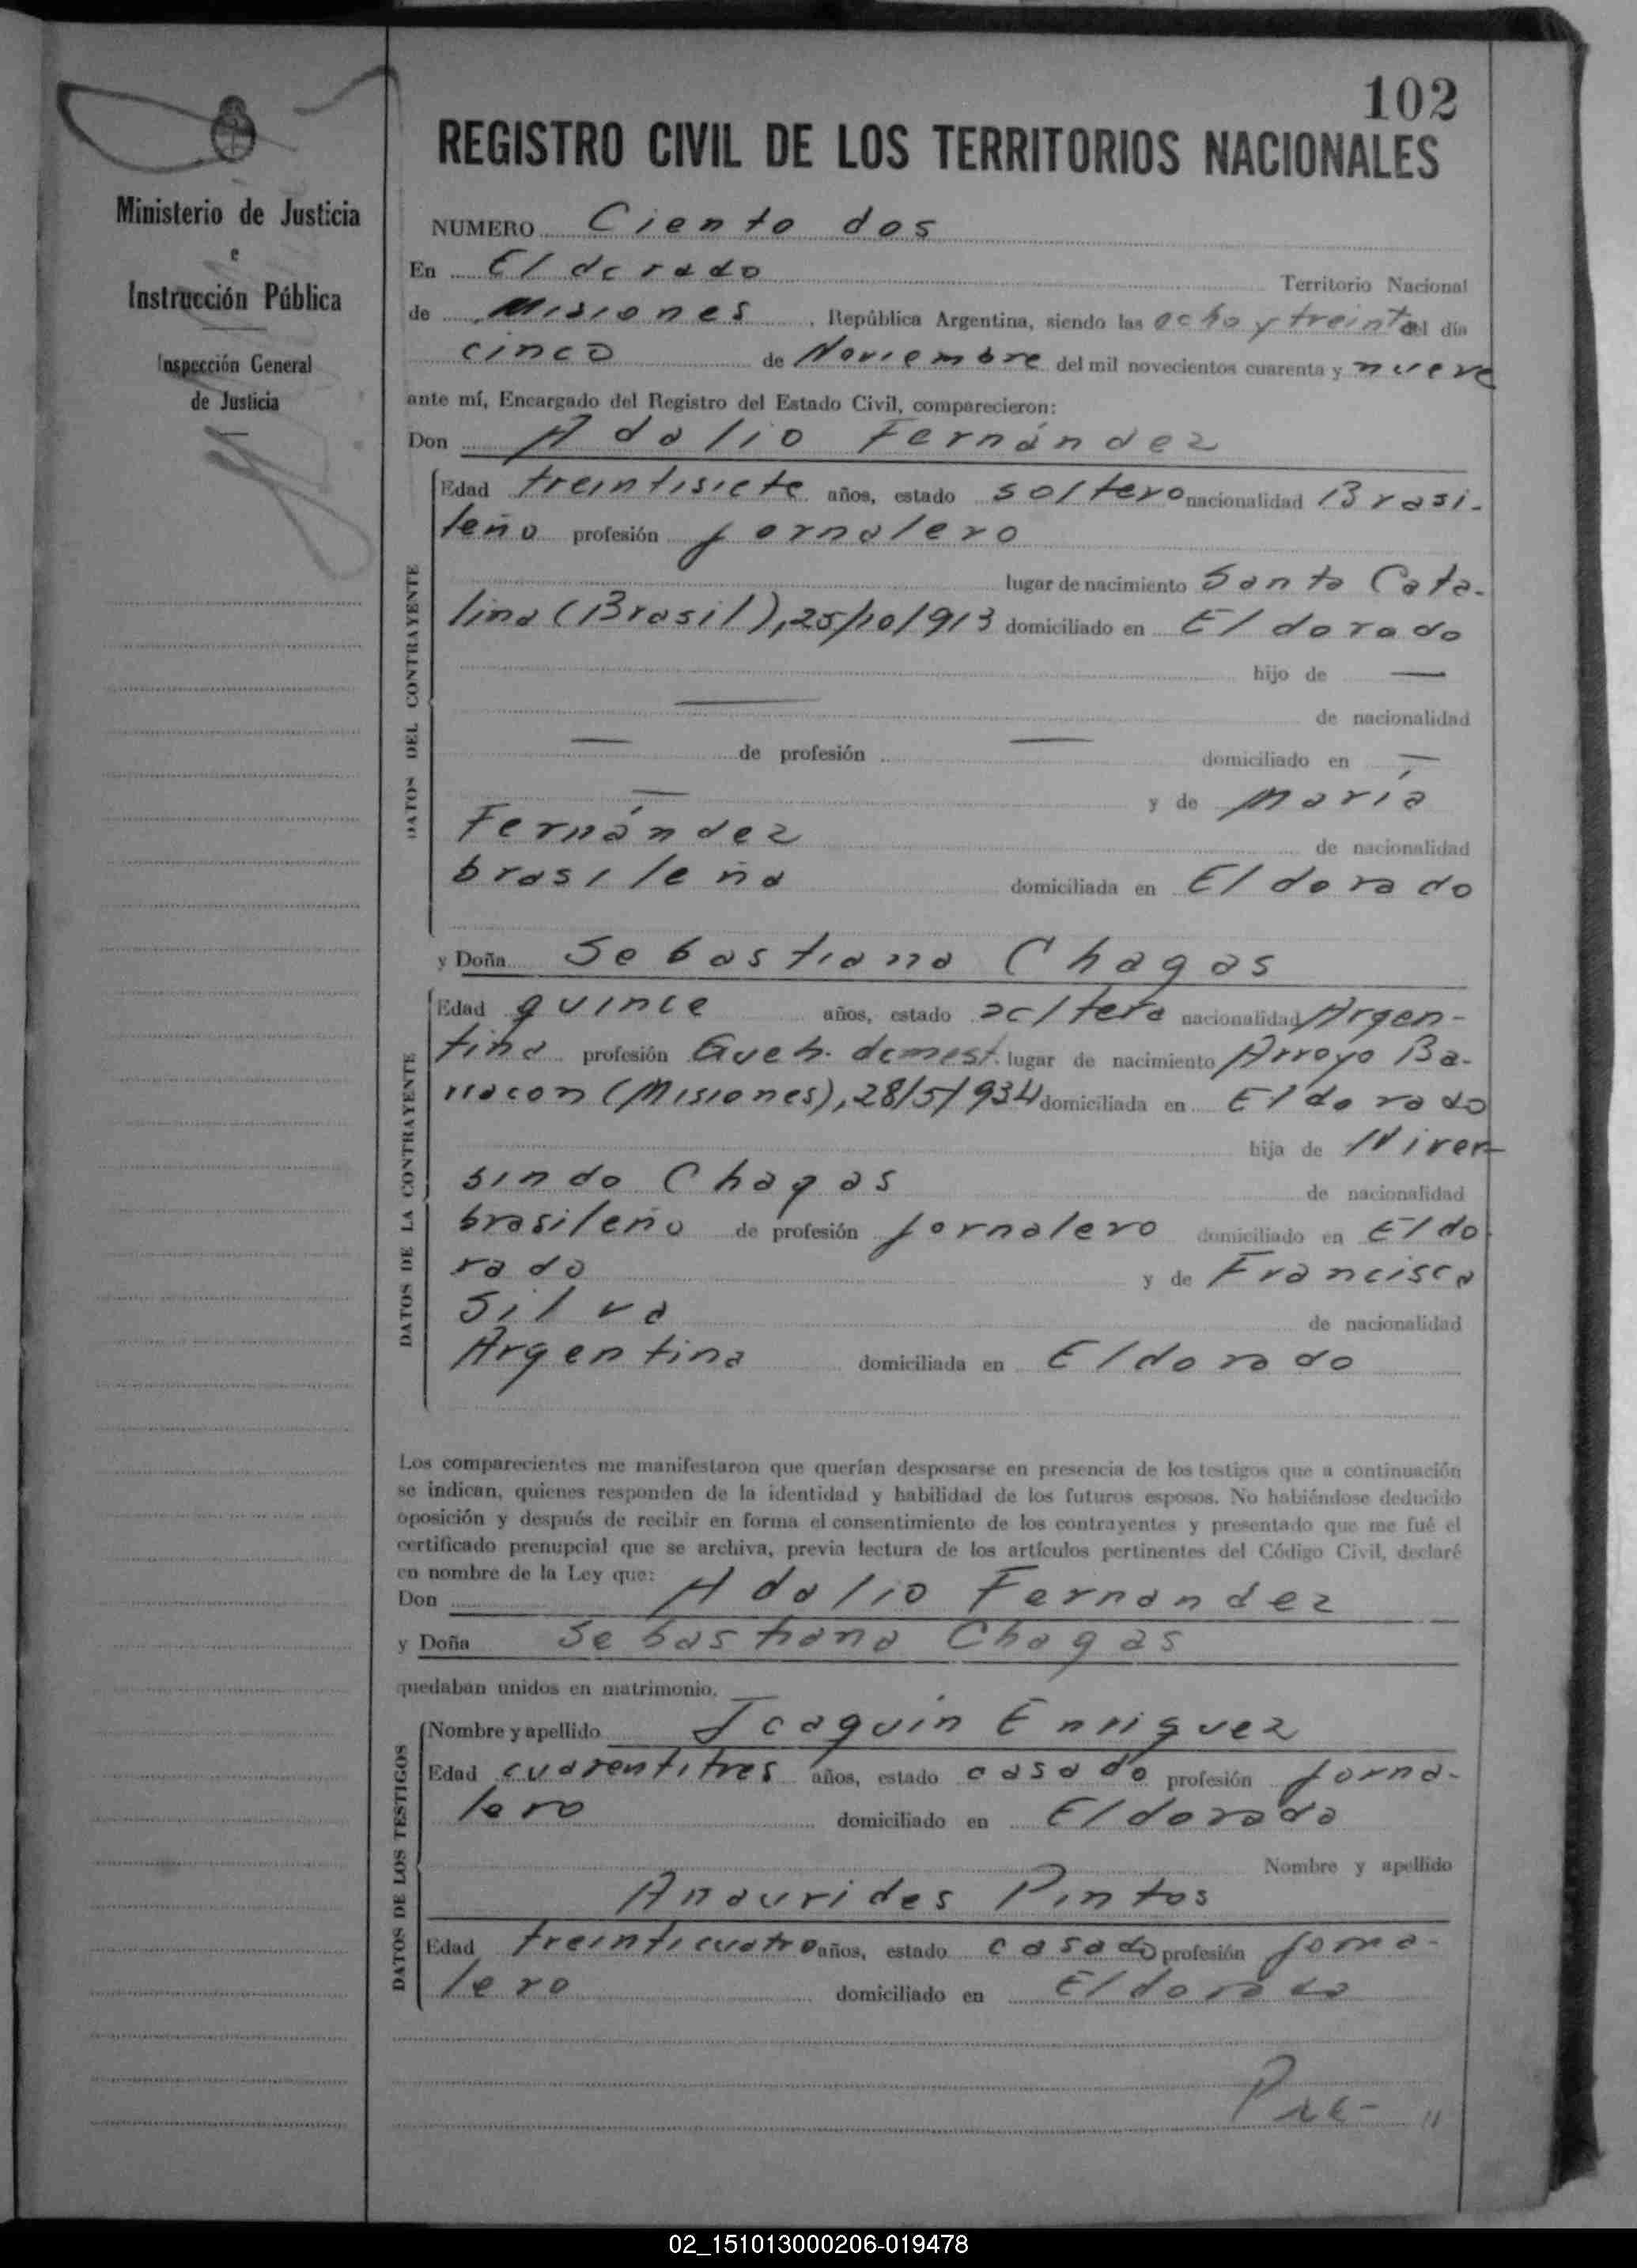 102
REGISTRO CIVIL DE LOS TERRITORIOS NACIONALES
Ministerio de Justicia
e
Instrucción Pública
Inspección General
de Justicia
NUMERO Ciento dos
En Eldorado Territorio Nacional
de Misiones, República Argentina, siendo las ocho y treinta del día
cinco de Noviembre del mil novecientos cuarenta y nueve
ante mí, Encargado del Registro del Estado Civil, comparecieron:
Don Adalio Fernández
DATOS DEL CONTRAYENTE
Edad treintisiete años, estado soltero nacionalidad Brasi-
leño profesión jornalero
lugar de nacimiento Santa Cata-
lina (Brasil), 25/10/913 domiciliado en Eldorado
hijo de —
— de nacionalidad
— de profesión — domiciliado en —
— y de María
Fernández de nacionalidad
brasileña domiciliada en Eldorado
y Doña Sebastiana Chagas
DATOS DE LA CONTRAYENTE
Edad quince años, estado soltera nacionalidad Argen-
tina profesión Queh. domest. lugar de nacimiento Arroyo
(Misiones), 28/5/934 domiciliada en Eldorado
hija de
Chagas de nacionalidad
brasileño de profesión jornalero domiciliado en Eldo
rado y de Francisca
Silva de nacionalidad
Argentina domiciliada en Eldorado
Los comparecientes me manifestaron que querían desposarse en presencia de los testigos que a continuación
se indican, quienes responden de la identidad y habilidad de los futuros esposos. No habiéndose deducido
oposición y después de recibir en forma el consentimiento de los contrayentes y presentado que me fué el
certificado prenupcial que se archiva, previa lectura de los artículos pertinentes del Código Civil, declaré
en nombre de la Ley que:
Don Adalio Fernandez
y Doña Sebastiana Chagas
quedaban unidos en matrimonio.
DATOS DE LOS TESTIGOS
Nombre y apellido Joaquín Enriquez
Edad cuarentitres años, estado casado profesión jorna-
lero domiciliado en Eldorado
Nombre y apellido
Anaurides Pintos
Edad treinticuatro años, estado casado profesión jorna-
lero domiciliado en Eldorado
02_151013000206-019478